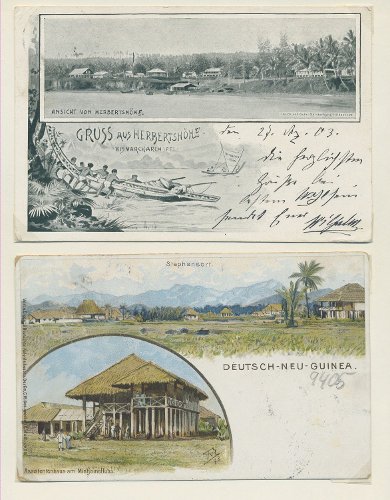 ANSICHT VON HERBERTSHÖHE.
GRUSS AUS HERBERTSHÖHE.
BISMARCKARCHIPEL.
den 24. 03.
die herzlichsten
Grüße bei
bestem Wohlsein
sendet Euer
Wilhelm
Stephansort.
DEUTSCH-NEU-GUINEA.
9405
Assistentenhaus am Minjoinafluss.